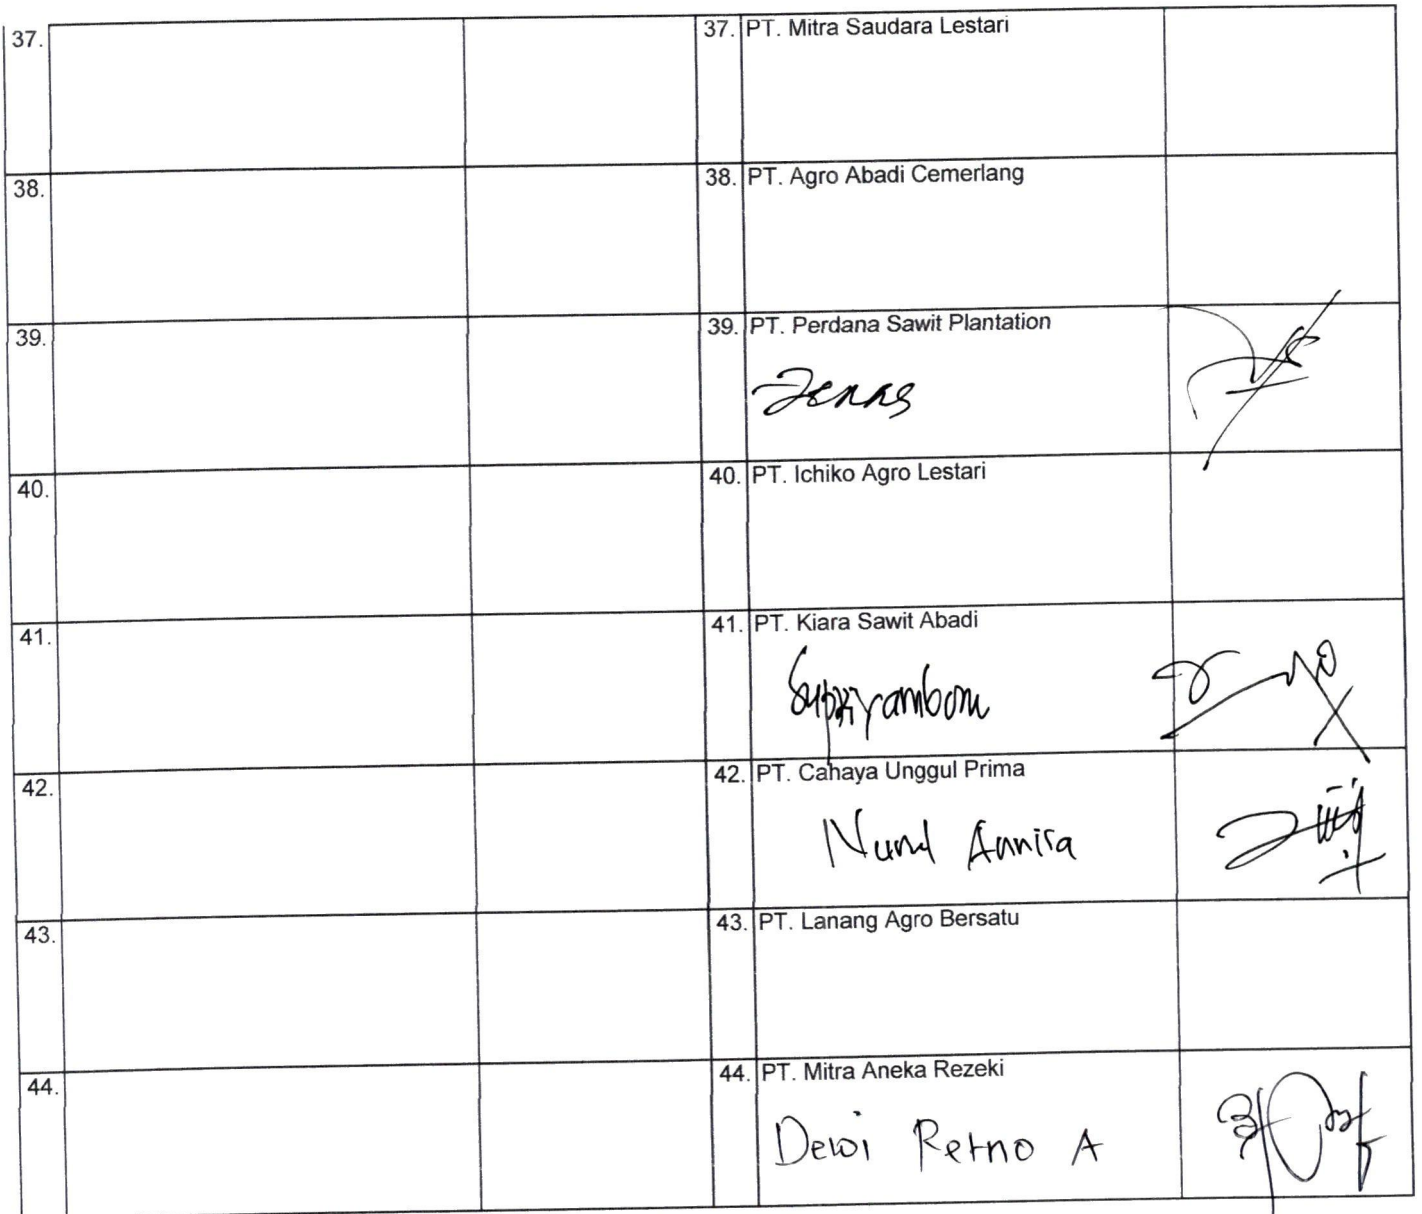 37. 37. PT. Mitra Saudara Lestari
38. 38. PT. Agro Abadi Cemerlang
39. 39. PT. Perdana Sawit Plantation
40. 40. PT. Ichiko Agro Lestari
41. 41. PT. Kiara Sawit Abadi
42. 42. PT. Cahaya Unggul Prima
Nurul Annisa
43. 43. PT. Lanang Agro Bersatu
44. 44. PT. Mitra Aneka Rezeki
Dewi Retno A